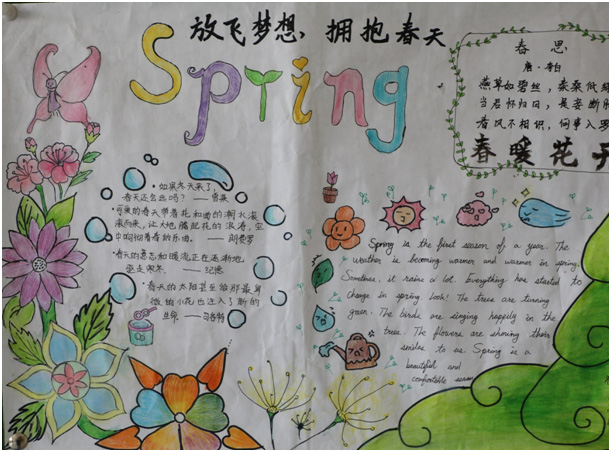 放飞梦想，拥抱春天
Spring
春思
唐·李白
燕草如碧丝，秦桑低绿
当君怀归日，是妾断肠
春风不相识，何事入罗
春暖花开
·如果冬天来了，
春天还会远吗？——雪莱
可爱的春天带着花和
滚向来，让大地
中响彻着春的乐曲。——
·春天的意志和暖流正在逐渐地
驱走寒冬。——纪德
·春天的太阳甚至给那最卑
微的小花也注入了新的
生命。——
Spring is the first season of a year. The
weather is becoming warmer and warmer in spring.
Sometimes, it rains a lot. Everything has started to
change in spring. Look! The trees are turning
green. The birds are singing happily in the
tree. The flowers are showing their
smiles to us. Spring is a
beautiful and
comfortable season